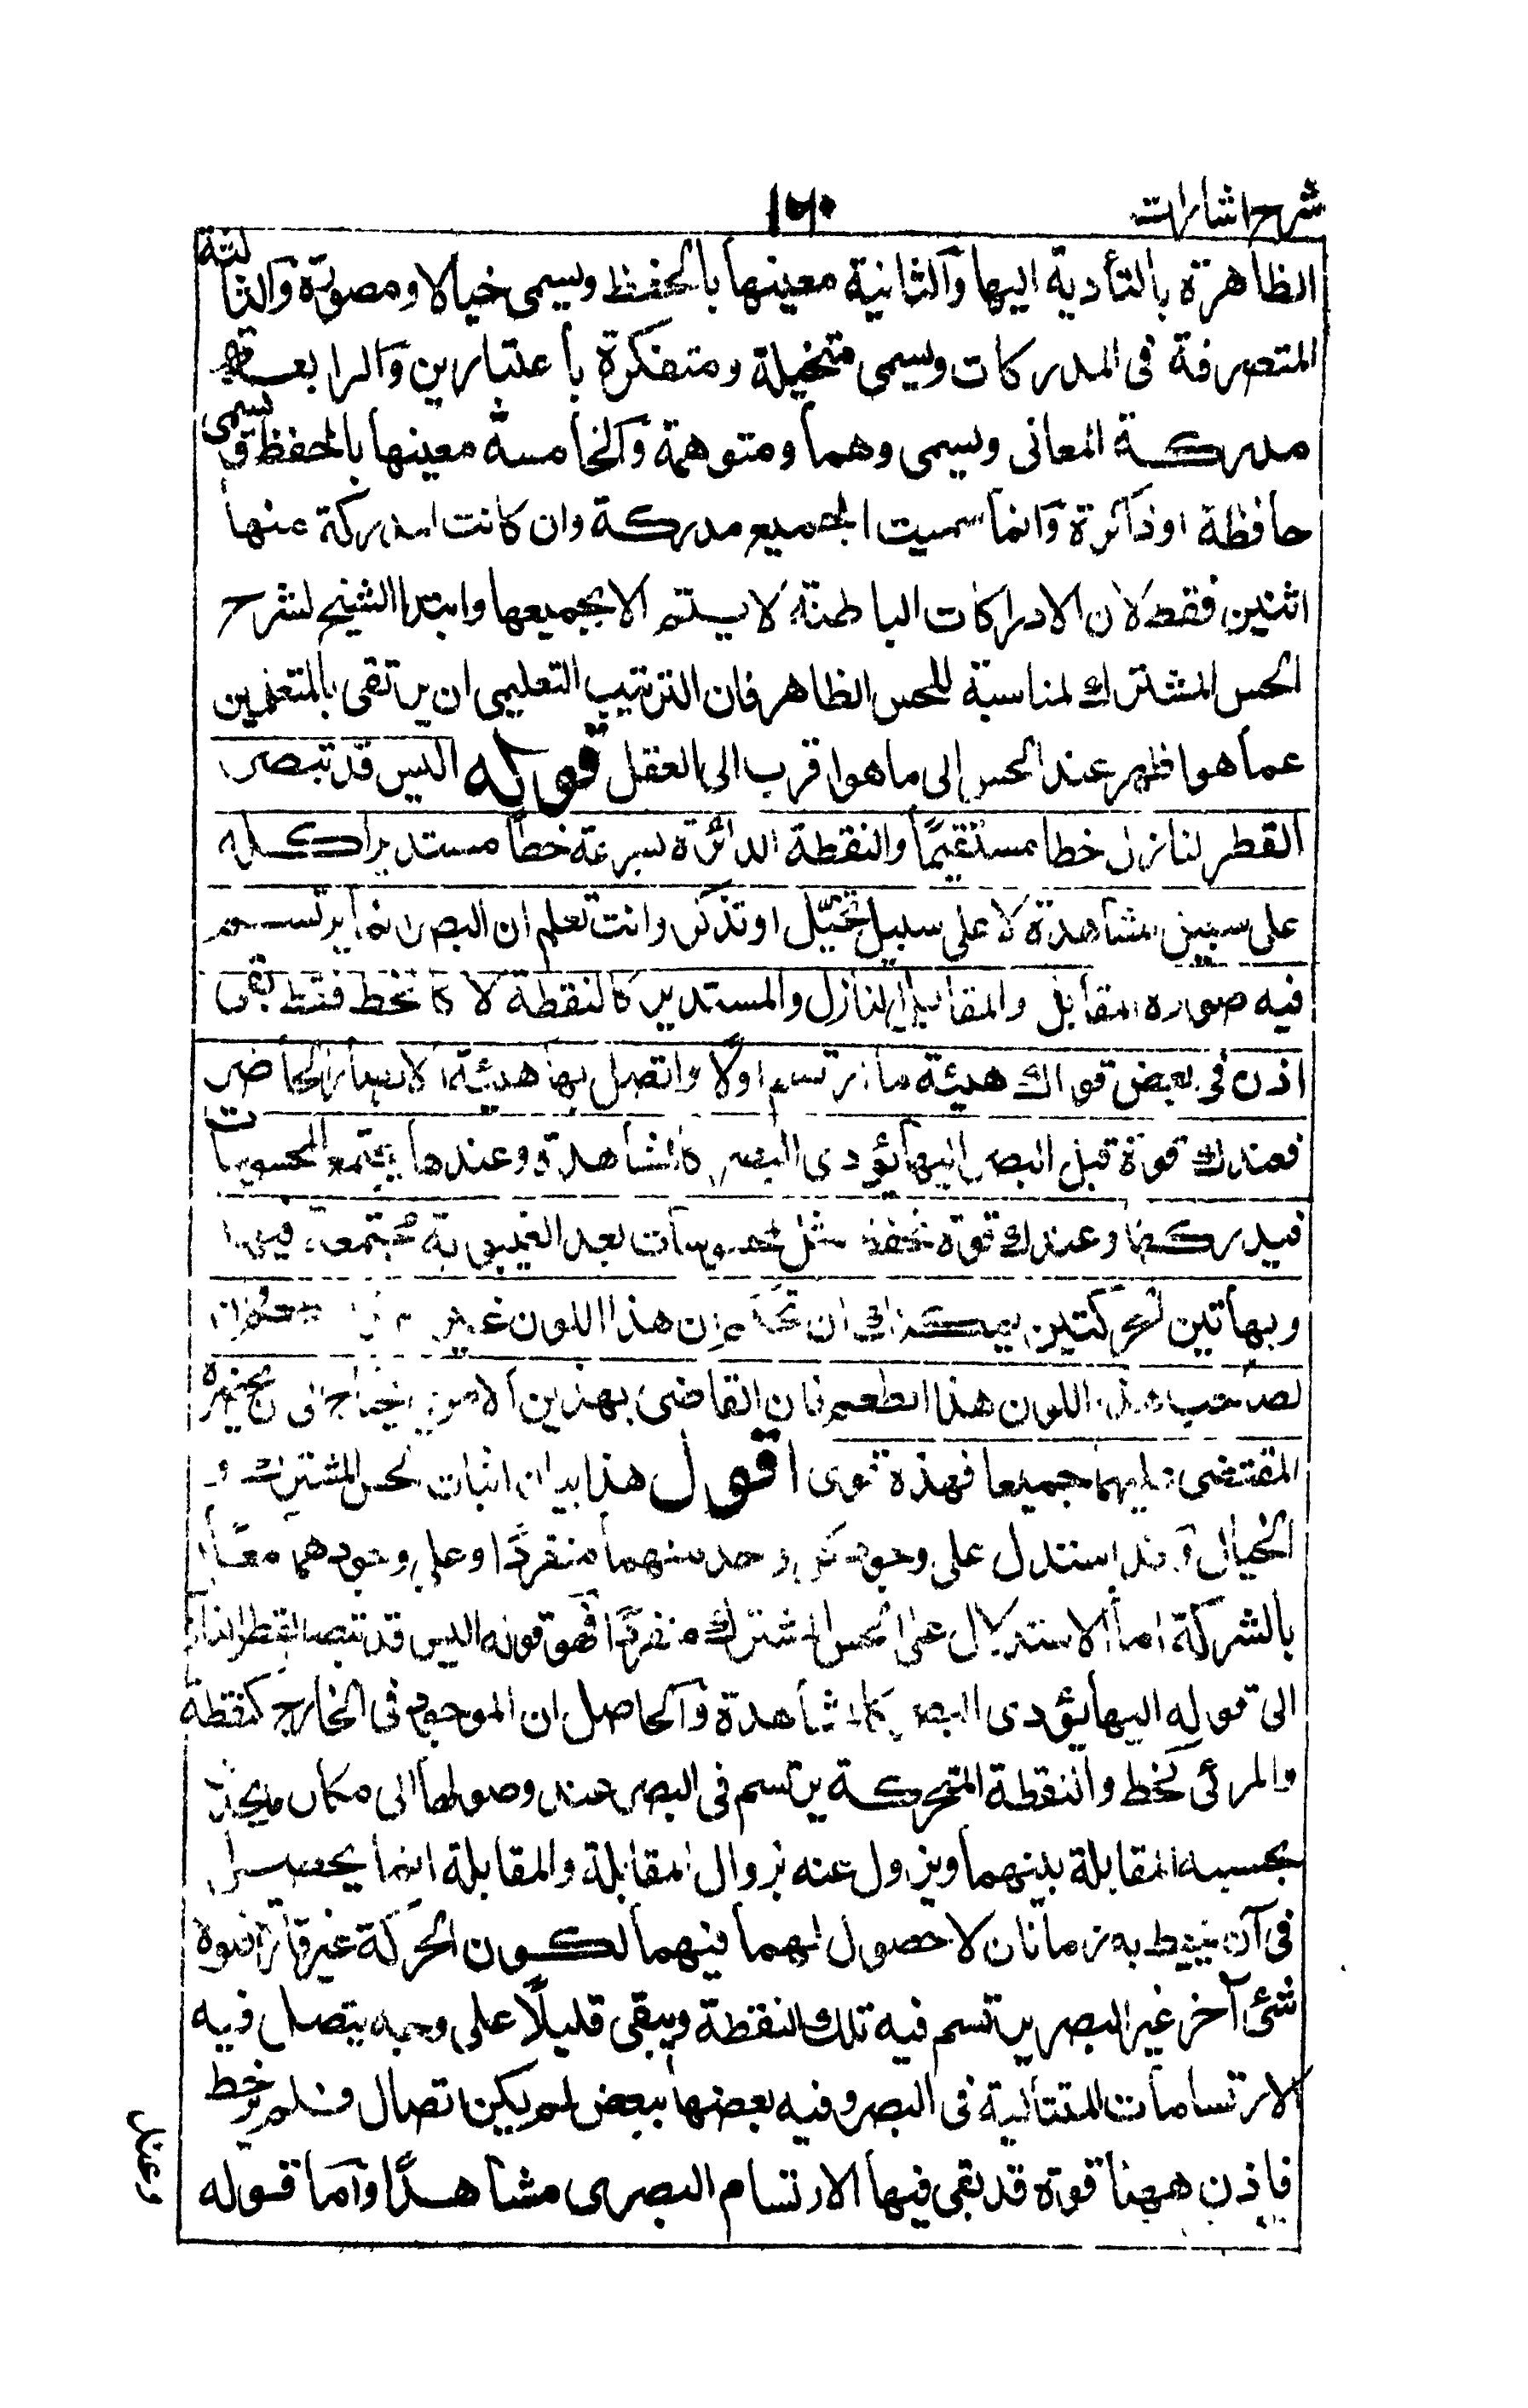 شرح اشارات
١٦٠
الظاهرة بالتأدية اليها والثانية معينها بالحفظ ويسمى خيالا ومصورة والثالثة
المتصرفة فى المدركات ويسمى متخيلة ومتفكرة باعتبارين والرابعة
مدركة المعانى ويسمى وهما ومتوهمة والخامسة معينها بالحفظ وتسمى
حافظة او ذاكرة وانما سميت الجميع مدركة وان كانت المدركة منها
اثنين فقط لان الادراكات الباطنة لا يستتم الا بجميعها وابتدا الشيخ لشرح
الحس المشترك لمناسبة للحس الظاهر فان الترتيب التعليمى ان يرتقى بالمتعلمين
عما هو اظهر عند الحس الى ما هو اقرب الى العقل قوله اليس قد تبصر
القطر لنازل خطا مستقيمًا والنقطة الدائرة بسرعة خطا مستديرا كله
على سبيل مشاهدة لا على سبيل تخيّل او تذكر وانت تعلم ان البصر انما يرتسم
فيه صورة المقابل والمقابل النازل والمستدير كالنقطة لا كالخط فقط بقى
اذن فى بعض قواك هيئة ما ارتسم اولًا واتصل بها هيئة الابصار الحاضر
فعندك قوة قبل البصر اليها يؤدى البصر كالمشاهدة وعندها يجتمع المحسوسات
فيدركها وعندك قوة تحفظ مثل المحسوسات بعد الغيبوبة مجتمعة فيها
وبهاتين القوتين يمكنك ان تحكم ان هذا اللون غير هذا الطعم وان
لصاحب هذا اللون هذا الطعم فان القاضى بهذين الامرين يحتاج الى ان يحضره
المقتضى عليهما جميعا فهذه قوى اقول هذا بيان اثبات الحس المشترك و
الخيال وقد استدل على وجود كل واحد منهما منفردًا وعلى وجودهما معًا
بالشركة اما الاستدلال على الحس المشترك منفردًا فهو قوله اليس قد تبصر القطر النازل
الى قوله اليها يؤدى البصر كالمشاهدة والحاصل ان الموجود فى الخارج كنقطة
والمرئى كخط والنقطة المتحركة يرتسم فى البصر عند وصولها الى مكان
بحسبه المقابلة بينهما ويزول عنه بزوال المقابلة والمقابلة انما يحصل
فى آن يحيط به زمانان لا حصول لهما فيهما لكون الحركة غير قارة فلولا
شئ آخر غير البصر يرتسم فيه تلك النقطة ويبقى قليلًا على وجه يتصل فيه
الارتسامات المتتالية فى البصر وفيه بعضها ببعض لم يكن اتصال فلم ير خط
فاذن ههنا قوة قد بقى فيها الارتسام البصرى مشاهدًا واما قوله
وعندك